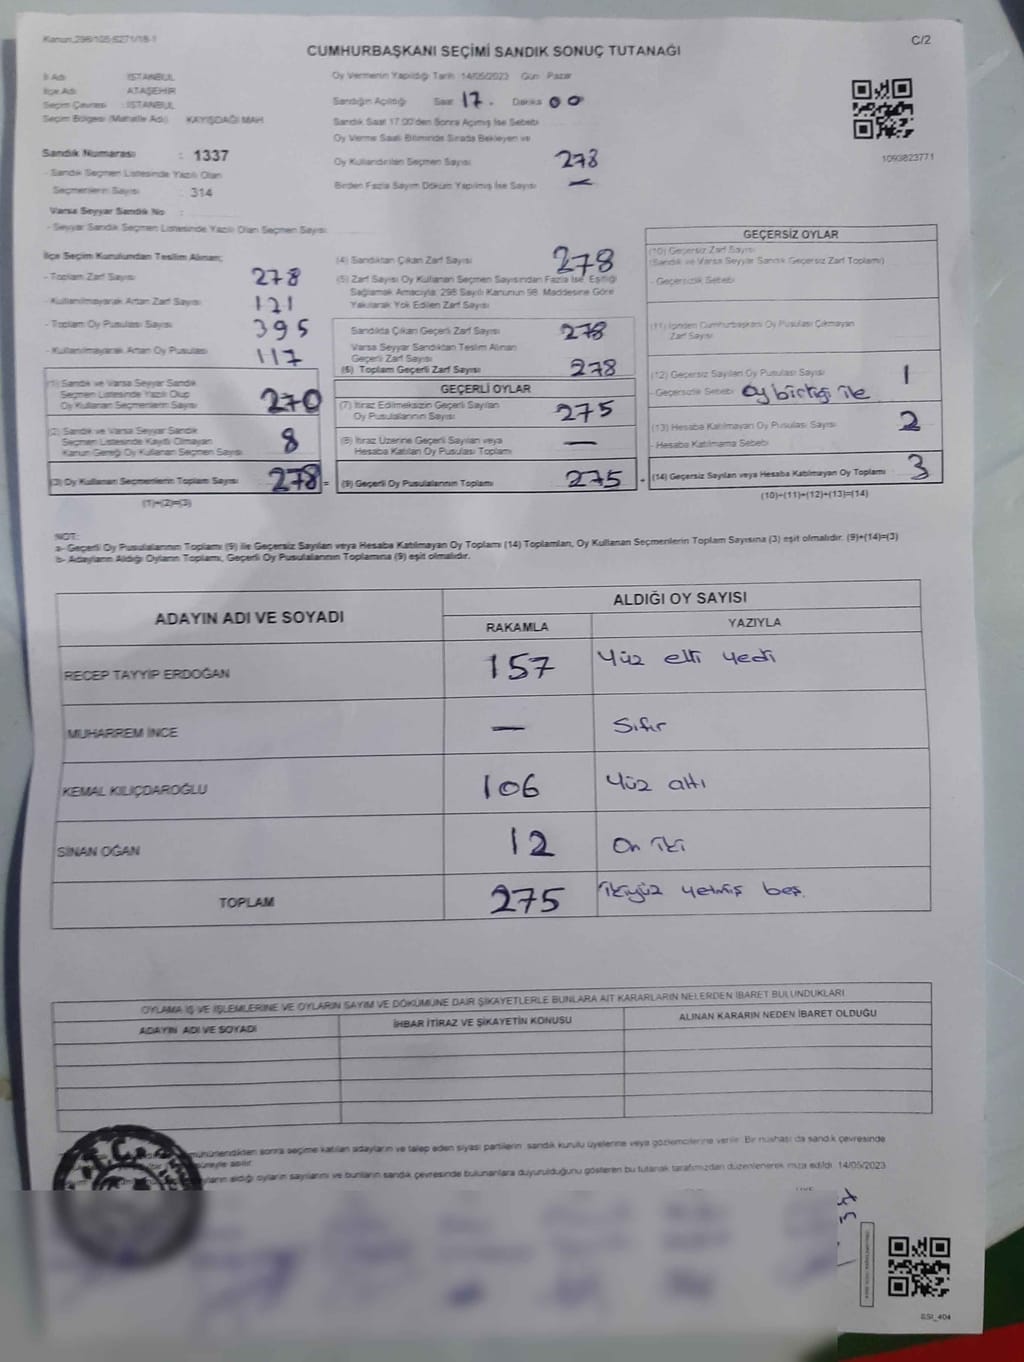 Kanun,298/105-6271/18-1
C/2
CUMHURBAŞKANI SEÇİMİ SANDIK SONUÇ TUTANAĞI
İl Adı : İSTANBUL
İlçe Adı : ATAŞEHİR
Seçim Çevresi : İSTANBUL
Seçim Bölgesi (Mahalle Adı) KAYIŞDAĞI MAH
Sandık Numarası : 1337
- Sandık Seçmen Listesinde Yazılı Olan
Seçmenlerin Sayısı : 314
Varsa Seyyar Sandık No :
- Seyyar Sandık Seçmen Listesinde Yazılı Olan Seçmen Sayısı:
Oy Vermenin Yapıldığı Tarih 14/05/2023 Gün Pazar
Sandığın Açıldığı Saat 17. Dakika 00
Sandık Saat 17:00'den Sonra Açılmış İse Sebebi
Oy Verme Saati Bitiminde Sırada Bekleyen ve
Oy Kullandırılan Seçmen Sayısı 278
Birden Fazla Sayım Döküm Yapılmış İse Sayısı —
1093823771
İlçe Seçim Kurulundan Teslim Alınan;
- Toplam Zarf Sayısı 278
- Kullanılmayarak Artan Zarf Sayısı 121
- Toplam Oy Pusulası Sayısı 395
- Kullanılmayarak Artan Oy Pusulası 117
(1) Sandık ve Varsa Seyyar Sandık
Seçmen Listesinde Yazılı Olup
Oy Kullanan Seçmenlerin Sayısı 270
(2) Sandık ve Varsa Seyyar Sandık
Seçmen Listesinde Kayıtlı Olmayan
Kanun Gereği Oy Kullanan Seçmen Sayısı 8
(3) Oy Kullanan Seçmenlerin Toplam Sayısı 278 =
(1)+(2)=(3)
(4) Sandıktan Çıkan Zarf Sayısı 278
(5) Zarf Sayısı Oy Kullanan Seçmen Sayısından Fazla İse, Eşitliği
Sağlamak Amacıyla; 298 Sayılı Kanunun 98. Maddesine Göre
Yakılarak Yok Edilen Zarf Sayısı
Sandıkta Çıkan Geçerli Zarf Sayısı 278
Varsa Seyyar Sandıktan Teslim Alınan
Geçerli Zarf Sayısı
(6) Toplam Geçerli Zarf Sayısı 278
GEÇERLİ OYLAR
(7) İtiraz Edilmeksizin Geçerli Sayılan
Oy Pusulalarının Sayısı 275
(8) İtiraz Üzerine Geçerli Sayılan veya
Hesaba Katılan Oy Pusulası Toplamı —
(9) Geçerli Oy Pusulalarının Toplamı 275 +
GEÇERSİZ OYLAR
(10) Geçersiz Zarf Sayısı
(Sandık ve Varsa Seyyar Sandık Geçersiz Zarf Toplamı)
- Geçersizlik Sebebi
(11) İçinden Cumhurbaşkanı Oy Pusulası Çıkmayan
Zarf Sayısı
(12) Geçersiz Sayılan Oy Pusulası Sayısı 1
- Geçersizlik Sebebi Oy birliği ile
(13) Hesaba Katılmayan Oy Pusulası Sayısı 2
- Hesaba Katılmama Sebebi
(14) Geçersiz Sayılan veya Hesaba Katılmayan Oy Toplamı 3
(10)+(11)+(12)+(13)=(14)
NOT:
a- Geçerli Oy Pusulalarının Toplamı (9) ile Geçersiz Sayılan veya Hesaba Katılmayan Oy Toplamı (14) Toplamları, Oy Kullanan Seçmenlerin Toplam Sayısına (3) eşit olmalıdır. (9)+(14)=(3)
b- Adayların Aldığı Oyların Toplamı, Geçerli Oy Pusulalarının Toplamına (9) eşit olmalıdır.
ADAYIN ADI VE SOYADI
ALDIĞI OY SAYISI
RAKAMLA YAZIYLA
RECEP TAYYİP ERDOĞAN 157 Yüz elli yedi
MUHARREM İNCE — Sıfır
KEMAL KILIÇDAROĞLU 106 Yüz altı
SİNAN OĞAN 12 On iki
TOPLAM 275 ikiyüz yetmiş beş.
OYLAMA İŞ VE İŞLEMLERİNE VE OYLARIN SAYIM VE DÖKÜMÜNE DAİR ŞİKAYETLERLE BUNLARA AİT KARARLARIN NELERDEN İBARET BULUNDUKLARI
ADAYIN ADI VE SOYADI İHBAR İTİRAZ VE ŞİKAYETİN KONUSU ALINAN KARARIN NEDEN İBARET OLDUĞU
mühürlendikten sonra seçime katılan adayların ve talep eden siyasi partilerin sandık kurulu üyelerine veya gözlemcilerine verilir. Bir nüshası da sandık çevresinde
süreyle asılır.
aldığı oyların sayılarını ve bunların sandık çevresinde bulunanlara duyurulduğunu gösteren bu tutanak tarafımızdan düzenlenerek imza edildi. 14/05/2023
T.C.
ESI_404